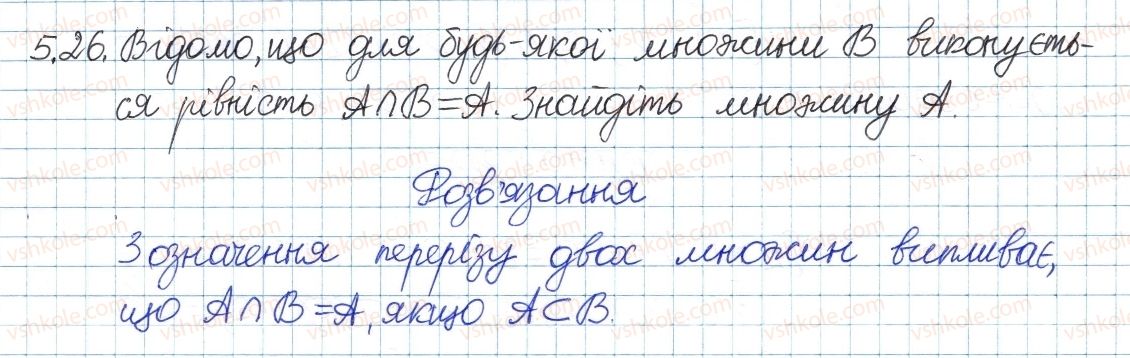 5.26. Відомо, що для будь-якої множини В виконуєть-
ся рівність A∩B=A. Знайдіть множину А.
Розв'язання
З означення перерізу двох множин випливає,
що A∩B=A, якщо A⊂B.